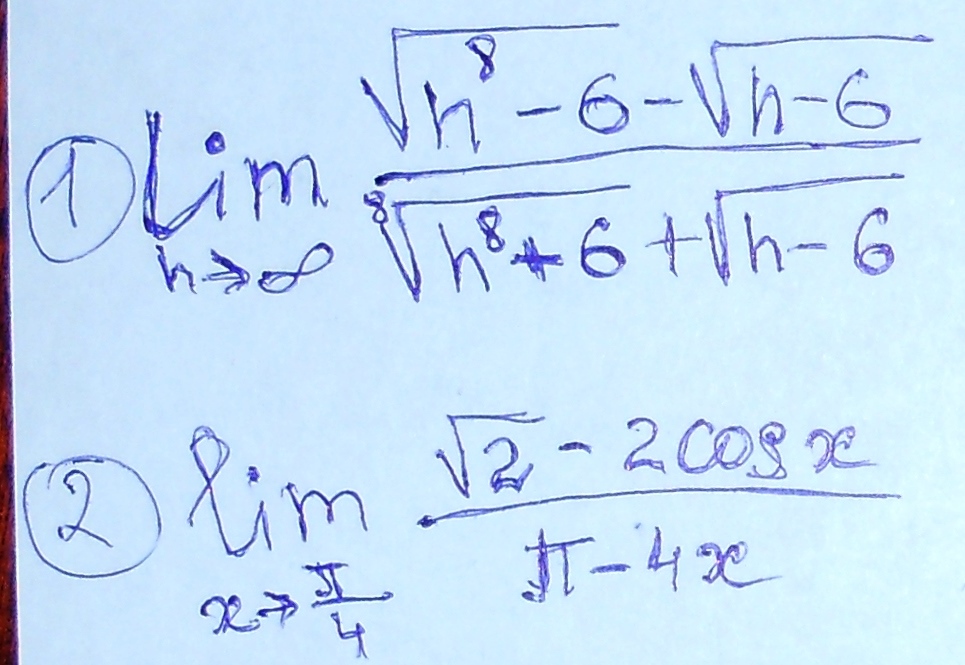 ① lim n→∞ (√(n⁸-6) - √(n-6)) / (⁸√(n⁸+6) + √(n-6))
② lim x→π/4 (√2 - 2cosx) / (π-4x)